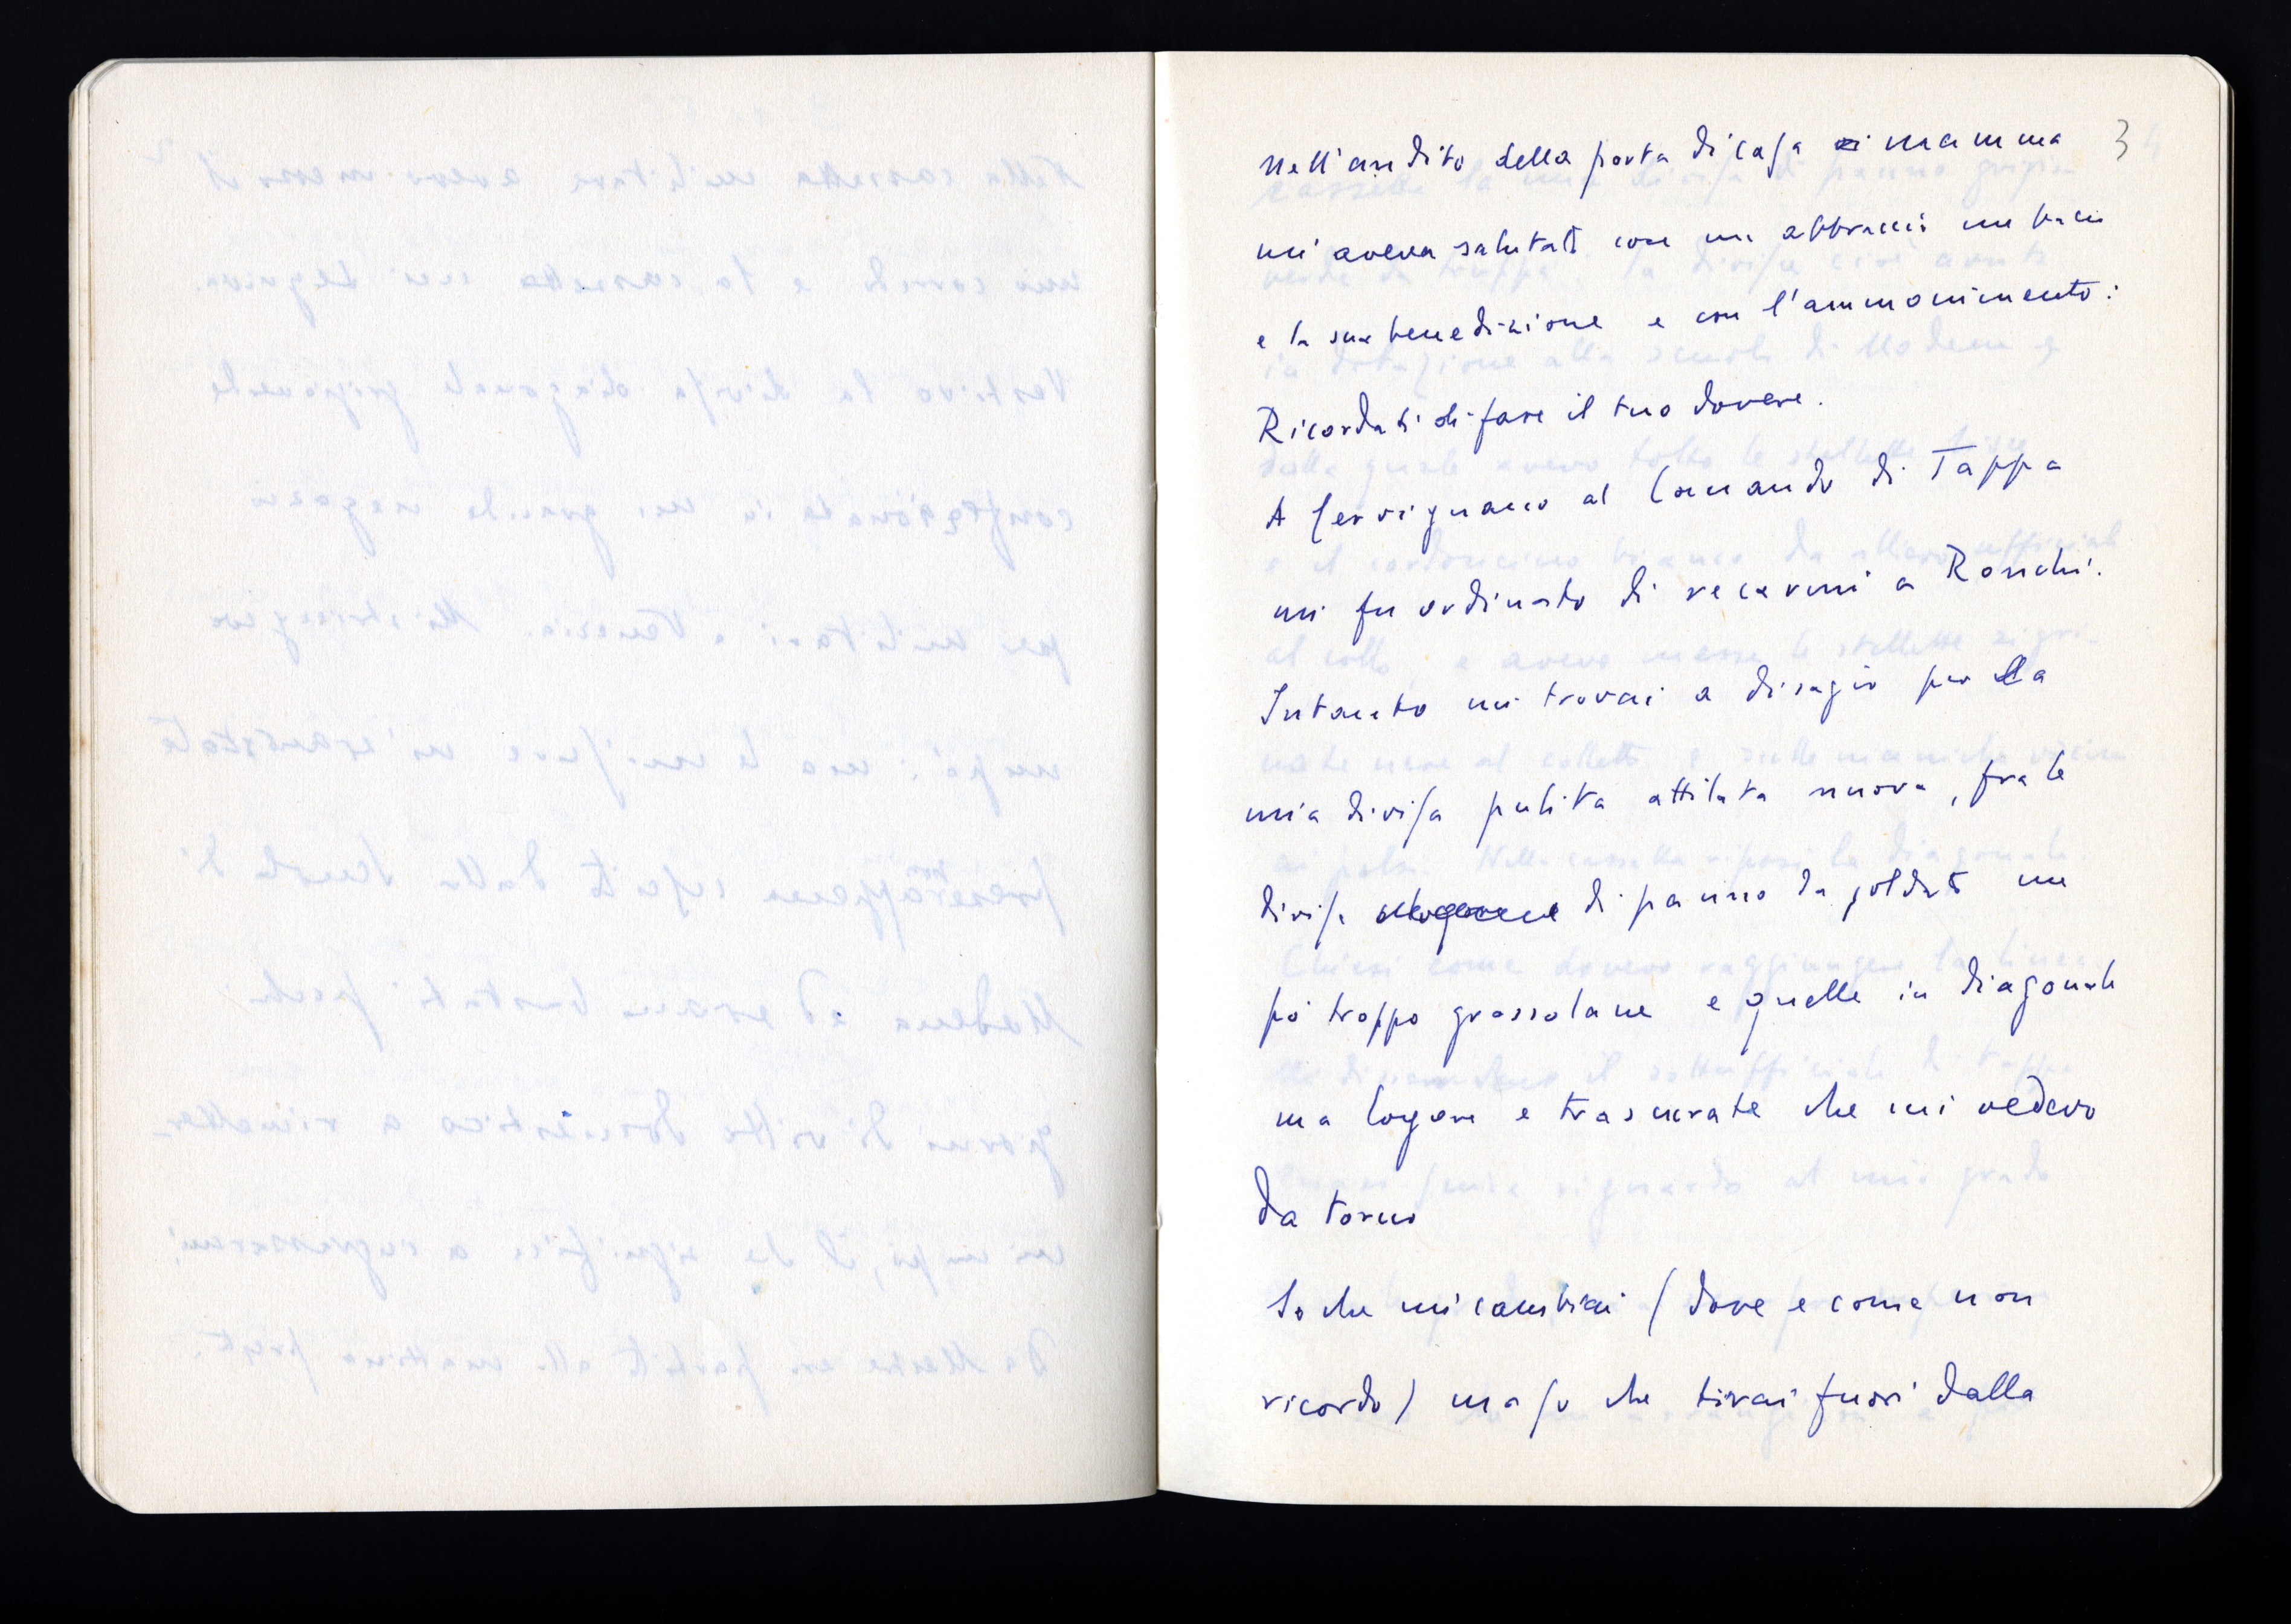 3
Nell'andito della porta di casa mamma
mi aveva salutato con un abbraccio un bacio
e la sua benedizione e con l'ammonimento:
Ricordati di fare il tuo dovere.
A Cervignano al Comando di Tappa
mi fu ordinato di recarmi a Ronchi.
Intanto mi trovai a disagio per la
mia divisa pulita attilata nuova, fra le
divise di panno da soldato un
pò troppo grossolane e quelle in diagonale
ma logore e trascurate che mi vedevo
da torno
So che mi cambiai (dove e come non
ricordo) ma so che tirai fuori dalla